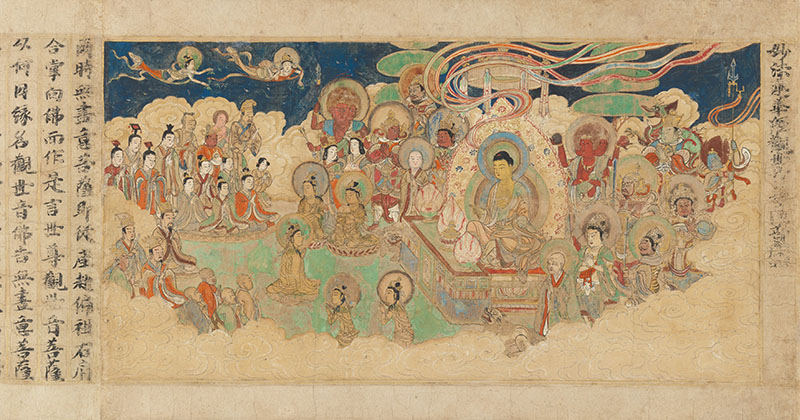 妙法蓮華經觀世音
爾時無盡意菩薩即從座起偏袒右肩
合掌向佛而作是言世尊觀世音菩薩
以何因緣名觀世音佛告無盡意菩薩